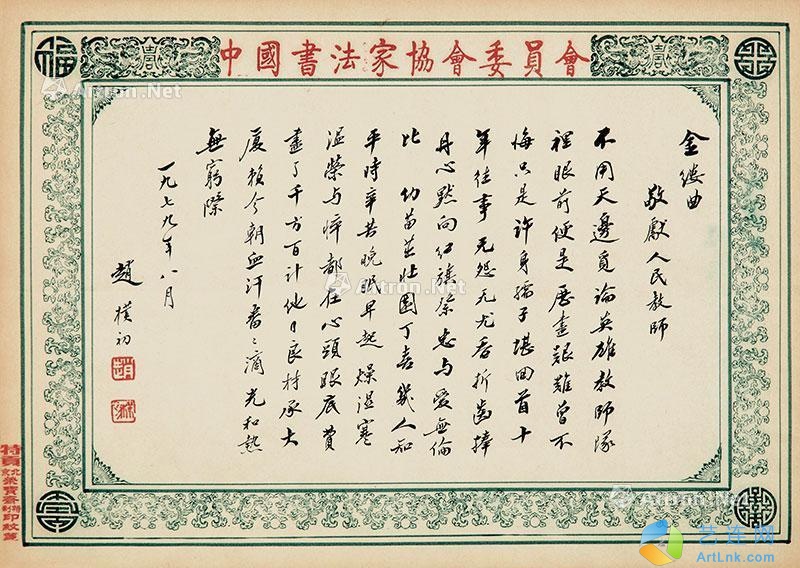 中國書法家協會委員會
金縷曲
敬獻人民教師
不用天邊覓論英雄教師隊
裡眼前便是歷盡艱難曾不
悔只是許身孺子堪回首十
年往事无怨无尤吞折齒捧
丹心默向紅旗祭忠與愛無倫
比 幼苗茁壯園丁喜幾人知
平時辛苦晚眠早起燥濕寒
溫榮與悴都在心頭眼底費
盡了千方百計他日良材承大
廈賴今朝血汗番〻滴光和熱
無窮際
一九七九年八月
趙樸初
特頁
Artron.Net
Artron.Net
Artron.Net
Artron.Net
艺连网
ArtLnk.com